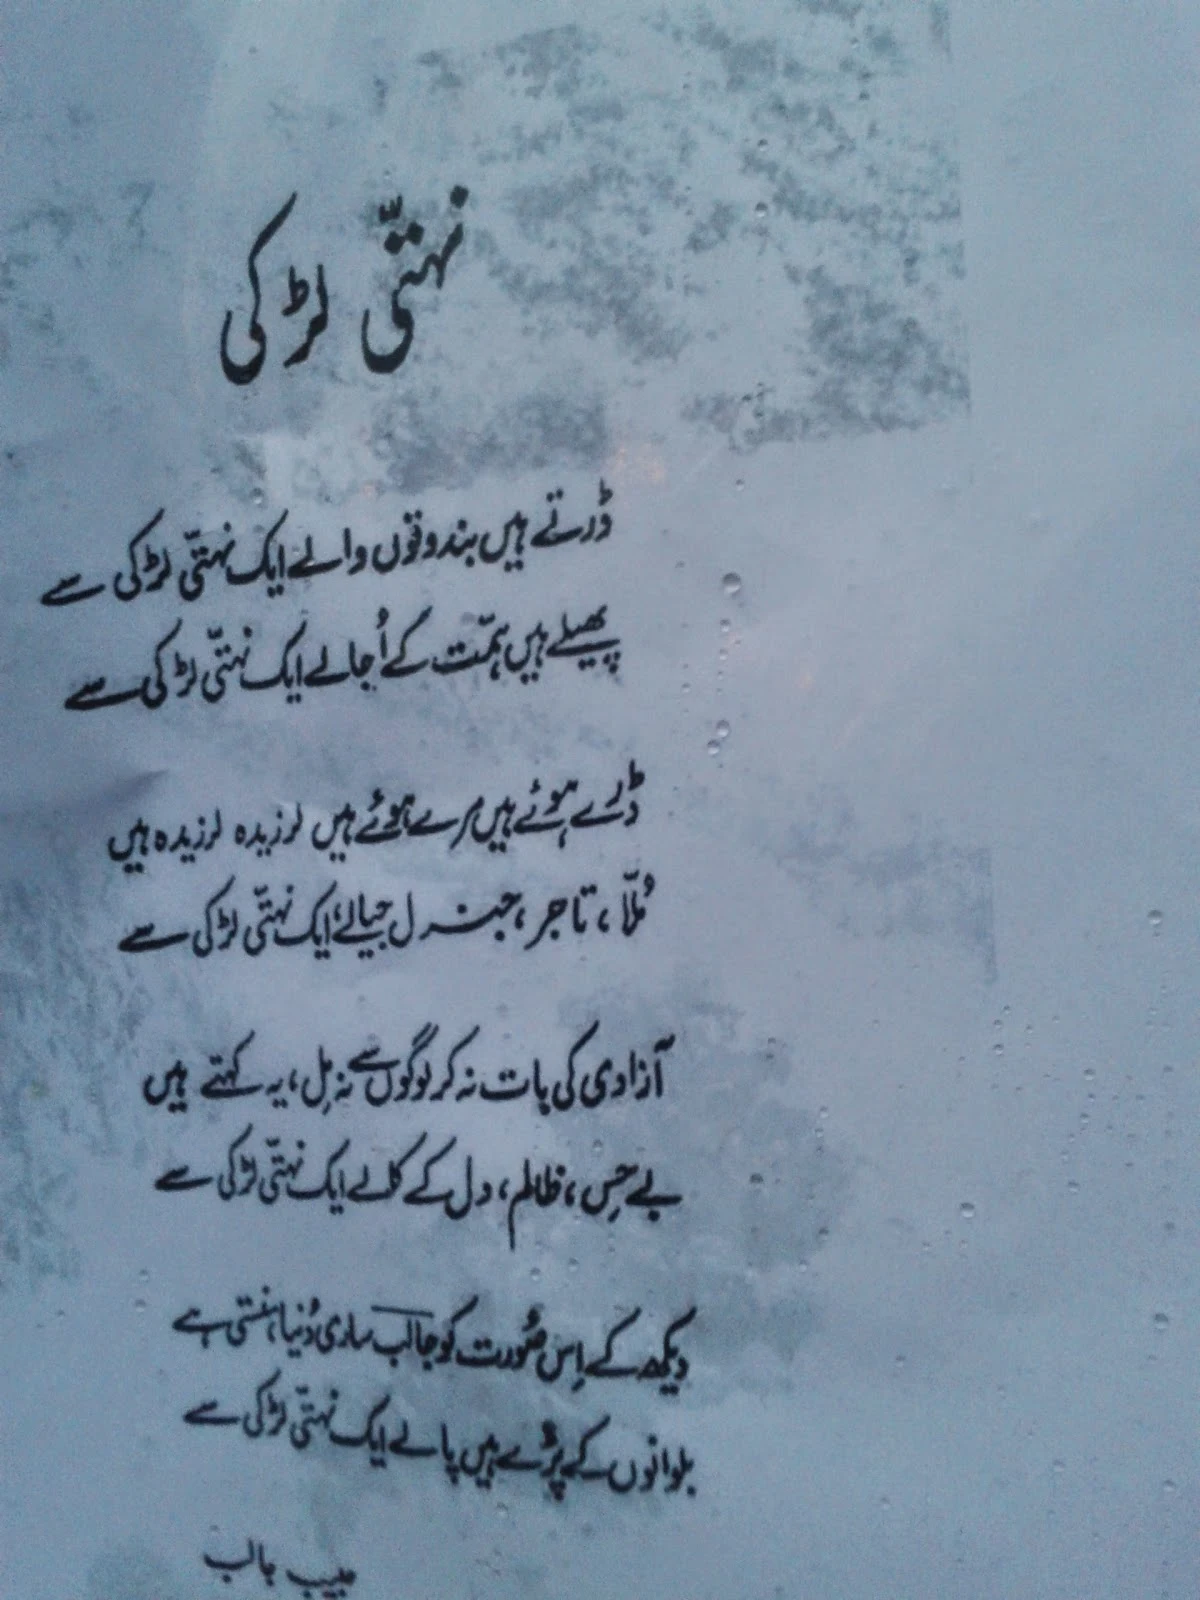 نہتّی لڑکی
ڈرتے ہیں بندوقوں والے ایک نہتّی لڑکی سے
پھیلے ہیں ہمّت کے اُجالے ایک نہتّی لڑکی سے
ڈرے ہوئے ہیں مرے ہوئے ہیں لرزیدہ لرزیدہ ہیں
مُلّا، تاجر، جنرل جیالے، ایک نہتّی لڑکی سے
آزادی کی بات نہ کر لوگوں سے نہ مِل، یہ کہتے ہیں
بے حِس، ظالم، دل کے کالے ایک نہتّی لڑکی سے
دیکھ کے اِس صُورت کو جالب ساری دُنیا ہنستی ہے
بلوانوں کے پڑے ہیں پالے ایک نہتّی لڑکی سے
حبیب جالب